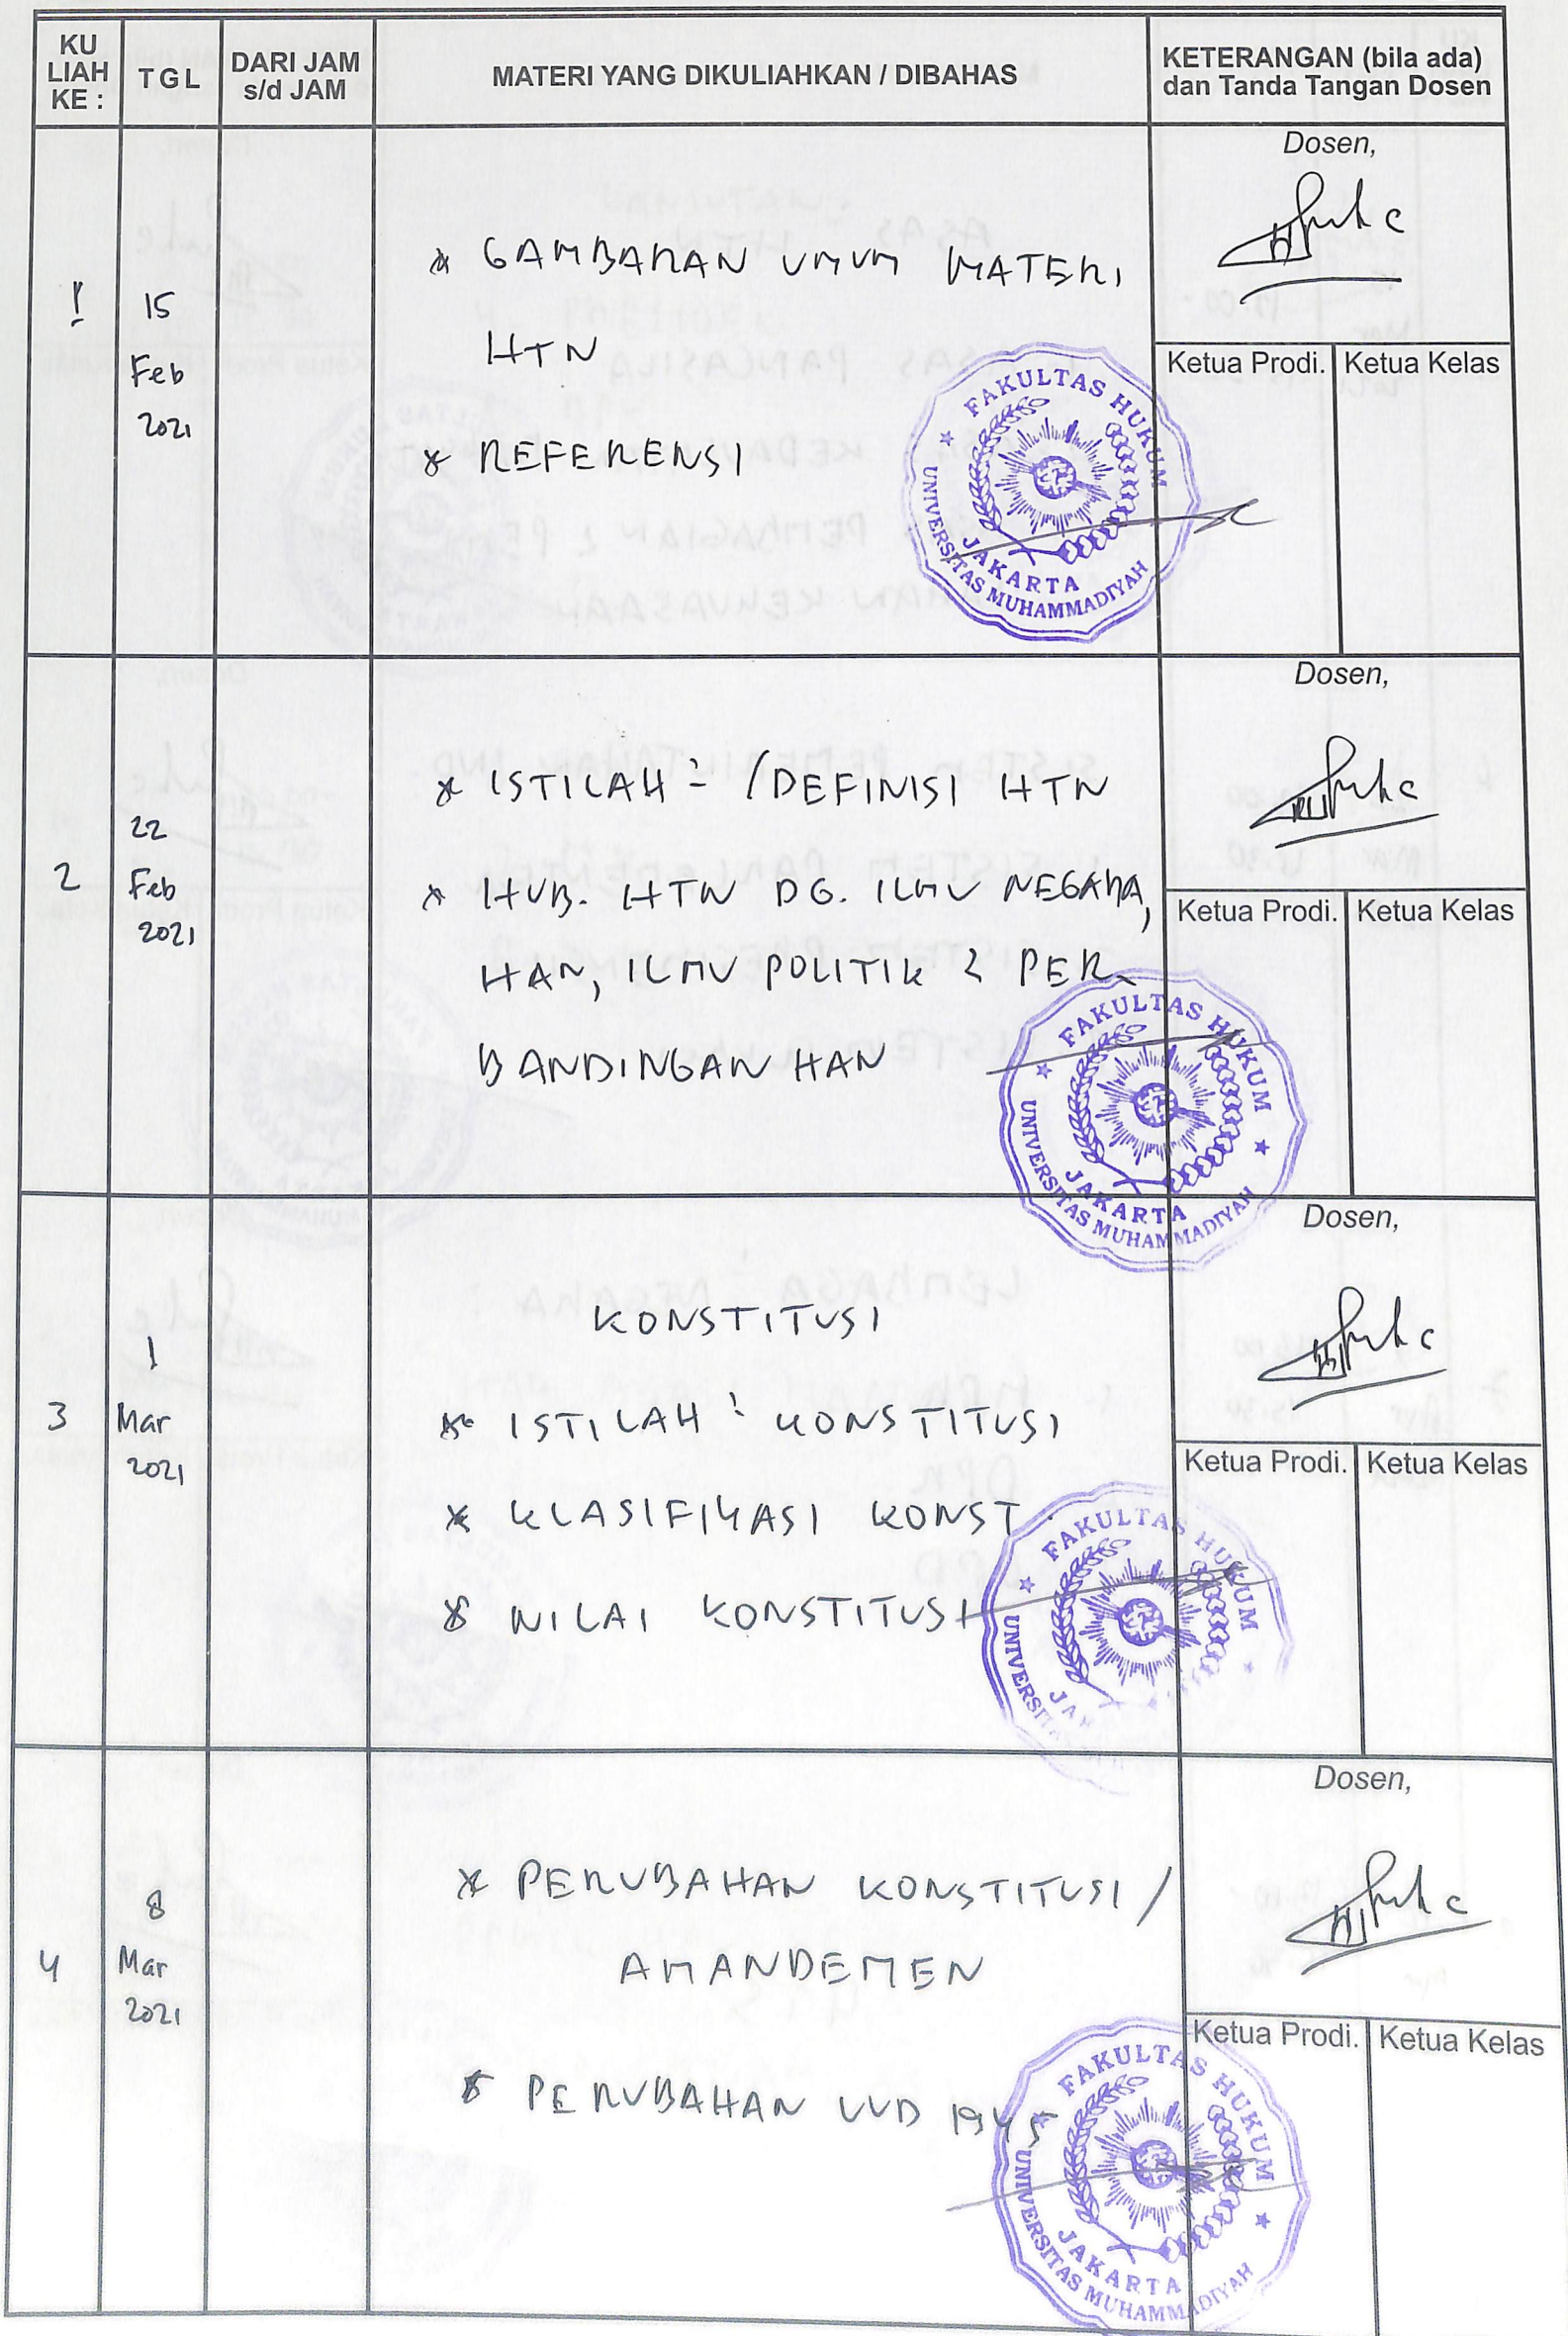 KU LIAH KE :
TGL
DARI JAM s/d JAM
MATERI YANG DIKULIAHKAN / DIBAHAS
KETERANGAN (bila ada) dan Tanda Tangan Dosen
1
15
Feb
2021
* GAMBARAN UMUM MATERI
HTN
* REFERENSI
Dosen,
Ketua Prodi.
Ketua Kelas
FAKULTAS HUKUM
UNIVERSITAS MUHAMMADIYAH
JAKARTA
2
22
Feb
2021
* ISTILAH² /DEFINISI HTN
* HUB. HTN DG. ILMU NEGARA,
HAN, ILMU POLITIK & PER-
BANDINGAN HAN
Dosen,
Ketua Prodi.
Ketua Kelas
FAKULTAS HUKUM
UNIVERSITAS MUHAMMADIYAH
JAKARTA
3
1
Mar
2021
KONSTITUSI
* ISTILAH² KONSTITUSI
* KLASIFIKASI KONST.
* NILAI KONSTITUSI
Dosen,
Ketua Prodi.
Ketua Kelas
FAKULTAS HUKUM
4
8
Mar
2021
* PERUBAHAN KONSTITUSI /
AMANDEMEN
* PERUBAHAN UUD 1945
Dosen,
Ketua Prodi.
Ketua Kelas
FAKULTAS HUKUM
UNIVERSITAS MUHAMMADIYAH
JAKARTA